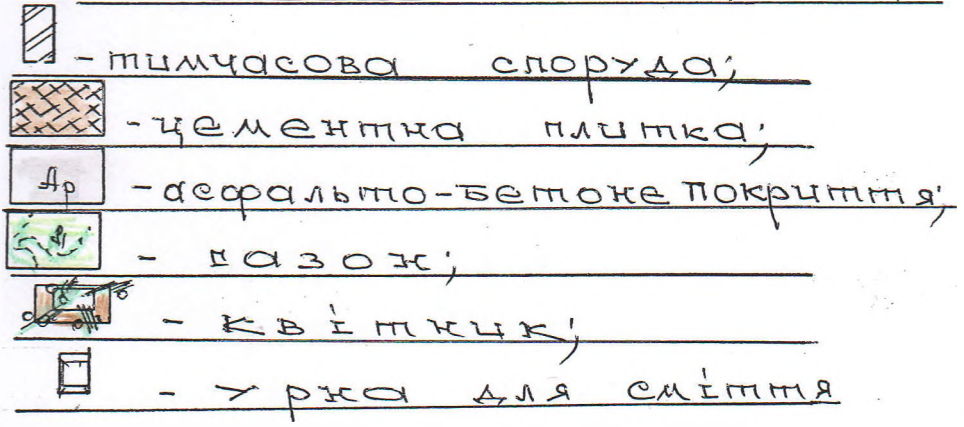 - тимчасова споруда;
- цементна плитка;
Ар - асфальто-бетоне покриття;
- газон;
- квітник;
- урна для сміття